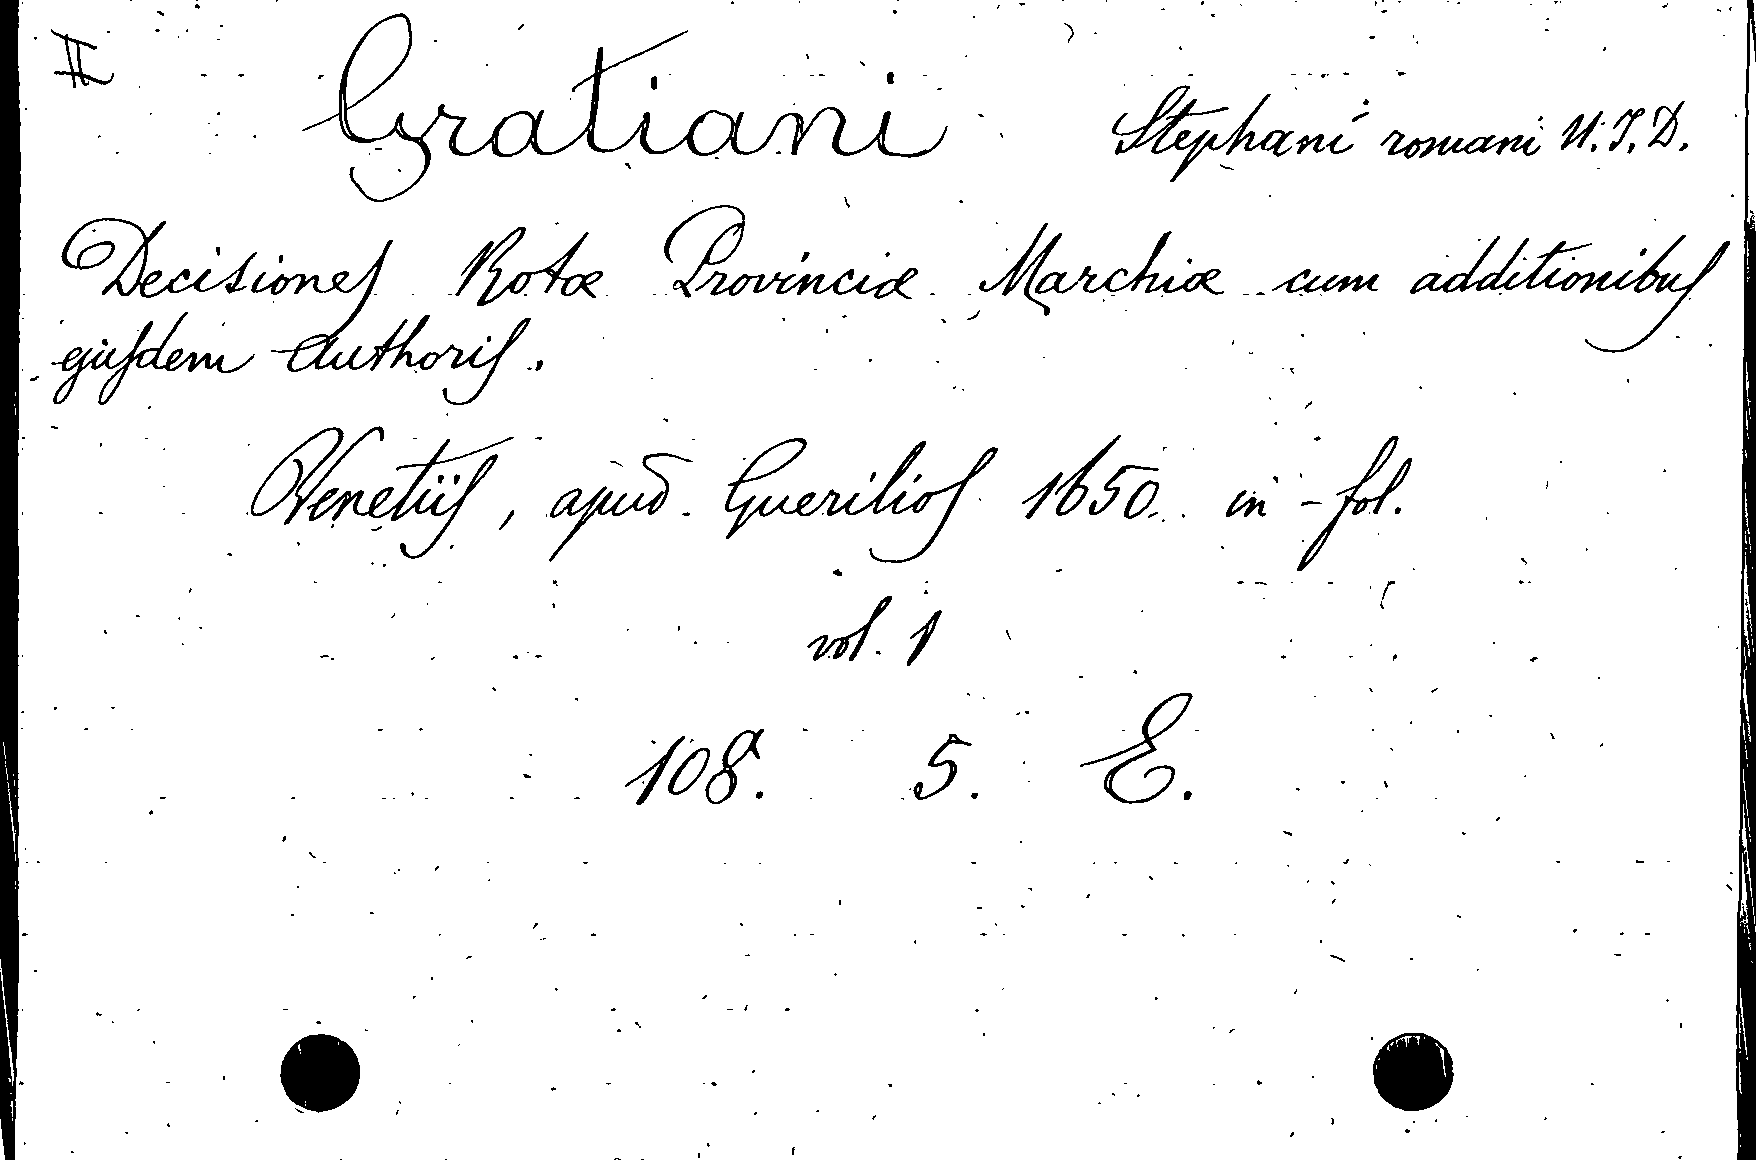 II
Gratiani Stephani romani U.J.D.
Decisiones Rotæ Provinciæ Marchiæ cum additionibus
ejusdem Authoris.
Venetiis, apud Guerilios 1650 in-fol.
vol. 1
108. 5. E.